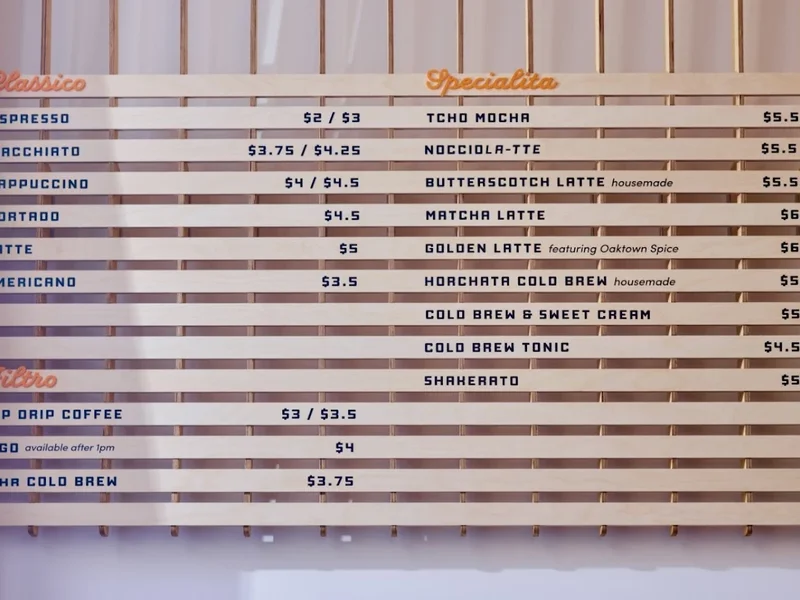 Classico
SPRESSO $2 / $3
ACCHIATO $3.75 / $4.25
APPUCCINO $4 / $4.5
ORTADO $4.5
ATTE $5
MERICANO $3.5
Filtro
P DRIP COFFEE $3 / $3.5
GO available after 1pm $4
HA COLD BREW $3.75
Specialita
TCHO MOCHA $5.5
NOCCIOLA-TTE $5.5
BUTTERSCOTCH LATTE housemade $5.5
MATCHA LATTE $6
GOLDEN LATTE featuring Oaktown Spice $6
HORCHATA COLD BREW housemade $5
COLD BREW & SWEET CREAM $5
COLD BREW TONIC $4.5
SHAKERATO $5